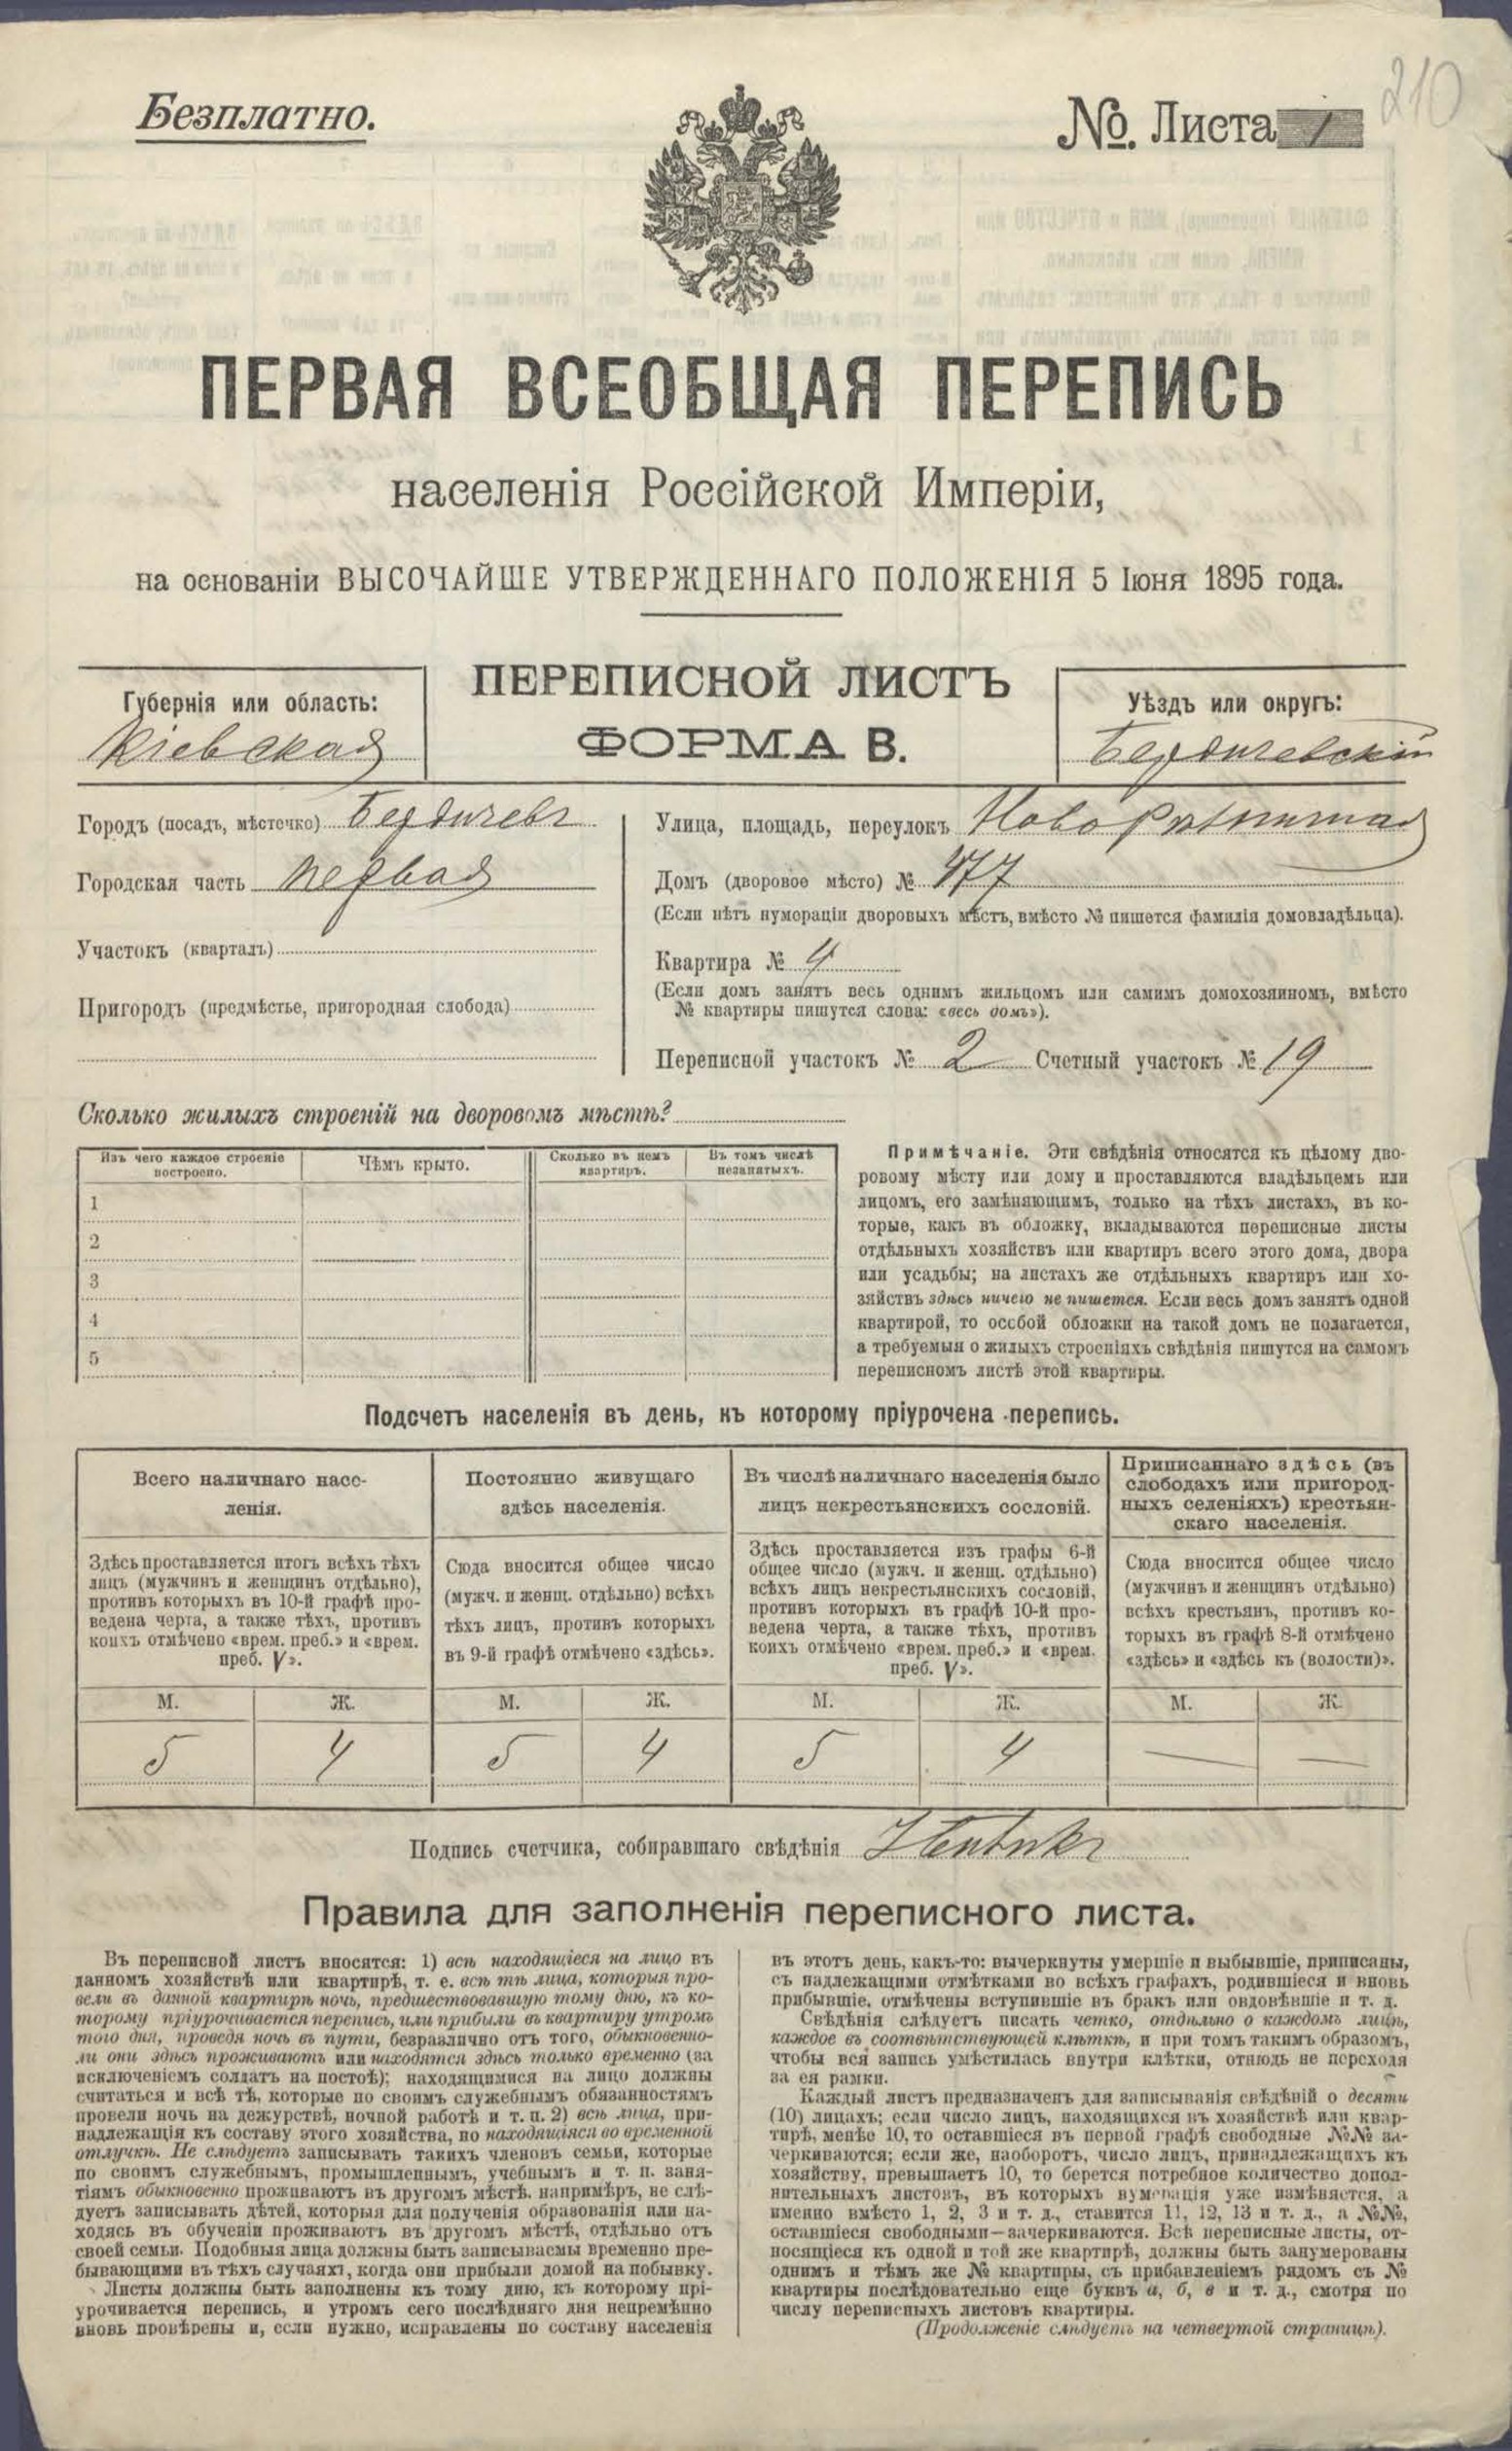 210
Безплатно.
№. Листа 1
ПЕРВАЯ ВСЕОБЩАЯ ПЕРЕПИСЬ
населенія Россійской Имперіи,
на основаніи ВЫСОЧАЙШЕ УТВЕРЖДЕННАГО ПОЛОЖЕНІЯ 5 Іюня 1895 года.
ПЕРЕПИСНОЙ ЛИСТЪ
ФОРМА В.
Губернія или область:
Кіевская
Уѣздъ или округъ:
Бердичевскій
Городъ (посадъ, мѣстечко) Бердичевъ
Городская часть первая
Участокъ (кварталъ)
Пригородъ (предмѣстье, пригородная слобода)
Улица, площадь, переулокъ
Домъ (дворовое мѣсто) № 477
(Если нѣтъ нумораціи дворовыхъ мѣстъ, вмѣсто № пишется фамилія домовладѣльца).
Квартира № 4
(Если домъ занятъ весь однимъ жильцомъ или самимъ домохозяиномъ, вмѣсто
№ квартиры пишутся слова: «весь домъ»).
Переписной участокъ № 2 Счетный участокъ № 19
Сколько жилыхъ строеній на дворовомъ мѣстѣ?
Изъ чего каждое строеніе
построено.
Чѣмъ крыто.
Сколько въ немъ
квартиръ.
Въ томъ числѣ
незанятыхъ.
1
2
3
4
5
Примѣчаніе. Эти свѣдѣнія относятся къ цѣлому дво-
ровому мѣсту или дому и проставляются владѣльцемъ или
лицомъ, его замѣняющимъ, только на тѣхъ листахъ, въ ко-
торые, какъ въ обложку, вкладываются переписные листы
отдѣльныхъ хозяйствъ или квартиръ всего этого дома, двора
или усадьбы; на листахъ же отдѣльныхъ квартиръ или хо-
зяйствъ здѣсь ничего не пишется. Если весь домъ занятъ одной
квартирой, то особой обложки на такой домъ не полагается,
а требуемыя о жилыхъ строеніяхъ свѣдѣнія пишутся на самомъ
переписномъ листѣ этой квартиры.
Подсчетъ населенія въ день, къ которому пріурочена перепись.
Всего наличнаго насе-
ленія.
Постоянно живущаго
здѣсь населенія.
Въ числѣ наличнаго населенія было
лицъ некрестьянскихъ сословій.
Приписаннаго здѣсь (въ
слободахъ или пригород-
ныхъ селеніяхъ) крестьян-
скаго населенія.
Здѣсь проставляется итогъ всѣхъ тѣхъ
лицъ (мужчинъ и женщинъ отдѣльно),
противъ которыхъ въ 10-й графѣ про-
ведена черта, а также тѣхъ, противъ
коихъ отмѣчено «врем. преб.» и «врем.
преб. V».
Сюда вносится общее число
(мужч. и женщ. отдѣльно) всѣхъ
тѣхъ лицъ, противъ которыхъ
въ 9-й графѣ отмѣчено «здѣсь».
Здѣсь проставляется изъ графы 6-й
общее число (мужч. и женщ. отдѣльно)
всѣхъ лицъ некрестьянскихъ сословій,
противъ которыхъ въ графѣ 10-й про-
ведена черта, а также тѣхъ, противъ
коихъ отмѣчено «врем. преб.» и «врем.
преб. V».
Сюда вносится общее число
(мужчинъ и женщинъ отдѣльно)
всѣхъ крестьянъ, противъ ко-
торыхъ въ графѣ 8-й отмѣчено
«здѣсь» и «здѣсь къ (волости)».
М. Ж. М. Ж. М. Ж. М. Ж.
5 4 5 4 5 4 — —
Подпись счетчика, собиравшаго свѣдѣнія
Правила для заполненія переписного листа.
Въ переписной листъ вносятся: 1) всѣ находящіеся на лицо въ
данномъ хозяйствѣ или квартирѣ, т. е. всѣ тѣ лица, которыя про-
вели въ данной квартирѣ ночь, предшествовавшую тому дню, къ ко-
торому пріурочивается перепись, или прибыли въ квартиру утромъ
того дня, проведя ночь въ пути, безразлично отъ того, обыкновенно-
ли они здѣсь проживаютъ или находятся здѣсь только временно (за
исключеніемъ солдатъ на постоѣ); находящимися на лицо должны
считаться и всѣ тѣ, которые по своимъ служебнымъ обязанностямъ
провели ночь на дежурствѣ, ночной работѣ и т. п. 2) всѣ лица, при-
надлежащія къ составу этого хозяйства, но находящіяся во временной
отлучкѣ. Не слѣдуетъ записывать такихъ членовъ семьи, которые
по своимъ служебнымъ, промышленнымъ, учебнымъ и т. п. заня-
тіямъ обыкновенно проживаютъ въ другомъ мѣстѣ, напримѣръ, не слѣ-
дуетъ записывать дѣтей, которыя для полученія образованія или на-
ходясь въ обученіи проживаютъ въ другомъ мѣстѣ, отдѣльно отъ
своей семьи. Подобныя лица должны быть записываемы временно пре-
бывающими въ тѣхъ случаяхъ, когда они прибыли домой на побывку.
Листы должны быть заполнены къ тому дню, къ которому прі-
урочивается перепись, и утромъ сего послѣдняго дня непремѣнно
вновь провѣрены и, если нужно, исправлены по составу населенія
въ этотъ день, какъ-то: вычеркнуты умершіе и выбывшіе, приписаны,
съ надлежащими отмѣтками во всѣхъ графахъ, родившіеся и вновь
прибывшіе, отмѣчены вступившіе въ бракъ или овдовѣвшіе и т. д.
Свѣдѣнія слѣдуетъ писать четко, отдѣльно о каждомъ лицѣ,
каждое въ соотвѣтствующей клѣткѣ, и при томъ такимъ образомъ,
чтобы вся запись умѣстилась внутри клѣтки, отнюдь не переходя
за ея рамки.
Каждый листъ предназначенъ для записыванія свѣдѣній о десяти
(10) лицахъ; если число лицъ, находящихся въ хозяйствѣ или квар-
тирѣ, менѣе 10, то оставшіеся въ первой графѣ свободные №№ за-
черкиваются; если же, наоборотъ, число лицъ, принадлежащихъ къ
хозяйству, превышаетъ 10, то берется потребное количество допол-
нительныхъ листовъ, въ которыхъ нумерація уже измѣняется, а
именно вмѣсто 1, 2, 3 и т. д., ставится 11, 12, 13 и т. д., а №№,
оставшіеся свободными—зачеркиваются. Всѣ переписные листы, от-
носящіеся къ одной и той же квартирѣ, должны быть занумерованы
однимъ и тѣмъ же № квартиры, съ прибавленіемъ рядомъ съ №
квартиры послѣдовательно еще буквъ а, б, в и т. д., смотря по
числу переписныхъ листовъ квартиры.
(Продолженіе слѣдуетъ на четвертой страницѣ).